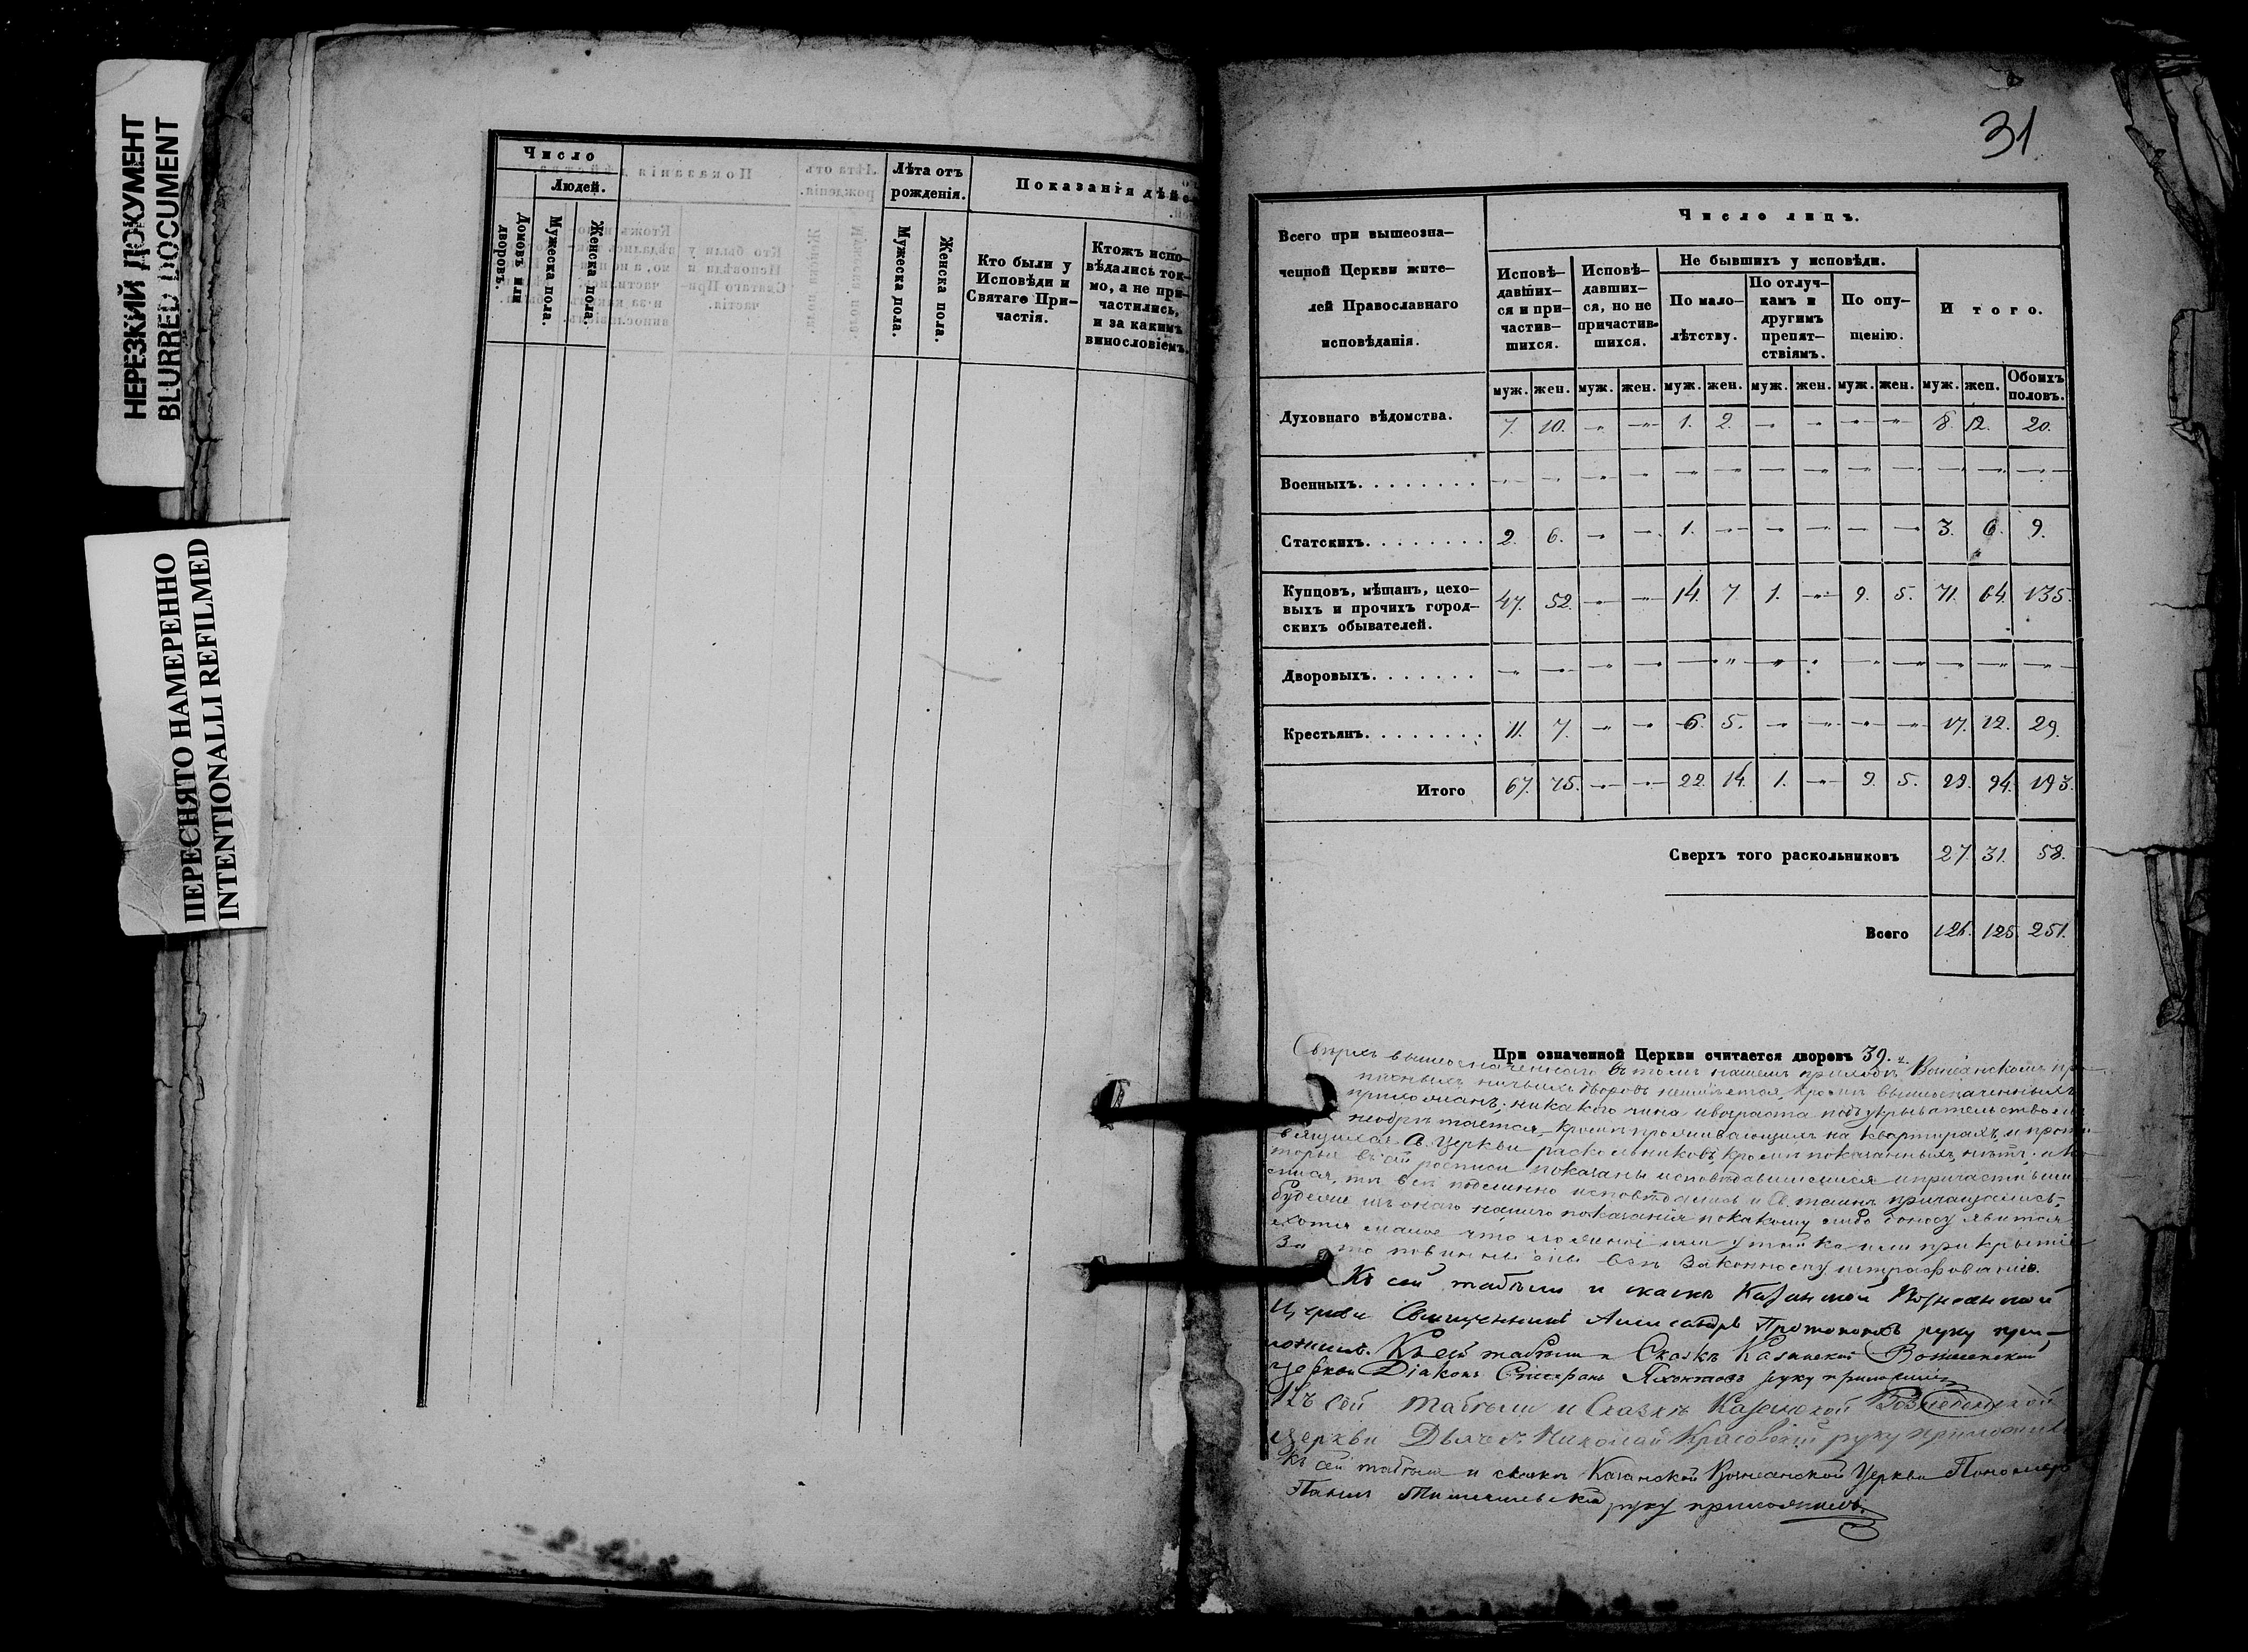 НЕРЕЗКИЙ ДОКУМЕНТ
BLURRED DOCUMENT
ПЕРЕСНЯТО НАМЕРЕННО
INTENTIONALLI REFILMED
Число
Людей.
Домовъ или дворовъ.
Мужеска пола.
Женска пола.
Лѣта отъ
рожденія.
Мужеска пола.
Женска пола.
Показанія дѣйс
Кто были у
Исповѣди и
Святаго При-
частія.
Ктожъ испо-
вѣдались ток-
мо, а не при-
частились,
и за какимъ
винословіемъ.
31
Всего при вышеозна-
ченной Церкви жите-
лей Православнаго
исповѣданія.
Число лицъ.
Исповѣ-
давших-
ся и при-
частив-
шихся.
Исповѣ-
давших-
ся, но не
причастив-
шихся.
Не бывшихъ у исповѣди.
По мало-
лѣтству.
По отлуч-
камъ и
другимъ
препят-
ствіямъ.
По опу-
щенію.
Итого.
муж. жен. муж. жен. муж. жен. муж. жен. муж. жен. муж. жен. Обоихъ половъ.
Духовнаго вѣдомства. 7. 10. -„- -„- 1. 2. -„- -„- -„- -„- 8. 12. 20.
Военныхъ. . . . . . . . -„- -„- -„- -„- -„- -„- -„- -„- -„- -„- -„- -„- -„-
Статскихъ. . . . . . . . 2. 6. -„- -„- 1. -„- -„- -„- -„- -„- 3. 6. 9.
Купцовъ, мѣщанъ, цехо-
выхъ и прочихъ город-
скихъ обывателей. 47. 52. -„- -„- 14. 7. 1. -„- 9. 5. 71. 64. 135.
Дворовыхъ. . . . . . . -„- -„- -„- -„- -„- -„- -„- -„- -„- -„- -„- -„- -„-
Крестьянъ. . . . . . . . 11. 7. -„- -„- 6. 5. -„- -„- -„- -„- 17. 12. 29.
Итого 67. 75. -„- -„- 22. 14. 1. -„- 9. 5. 94. 193.
Сверхъ того раскольниковъ 27. 31. 58.
Всего 126. 125. 251.
При означенной Церкви считается дворовъ 39.
Сверхъ вышеозначеннаго въ томъ нашемъ приходѣ
дворовъ неимѣется, кромѣ вышеозначенныхъ
прихожанъ, никакого чина
кромѣ проживающихъ на квартирахъ, и
Церкви раскольниковъ, кромѣ показанныхъ, нѣтъ.
въ сей росписи показаны исповѣдавшимися и причастивши
мися, тѣ всѣ подлинно исповѣдались и Св. таинъ причащались.
Будеже изъ онаго нашего показанія по какому либо доносу явится
хотя малое что ложное или утайка или прикрытіе
За то повинны законному штрафованію.
Къ сей табели и сказкѣ Казанской
Церкви Священникъ Александръ Протопоповъ руку при-
ложилъ. Къ сей табели и Сказкѣ Казанской Вознесенской
церкви Діаконъ Стефанъ руку приложилъ
Къ сей табели и Сказкѣ Казанской Вознесенской
Церкви Дьячекъ Николай Красовскій руку приложилъ
Къ сей табели и сказкѣ Казанской Вознесенской Церкви Пономарь
Павелъ руку приложилъ.